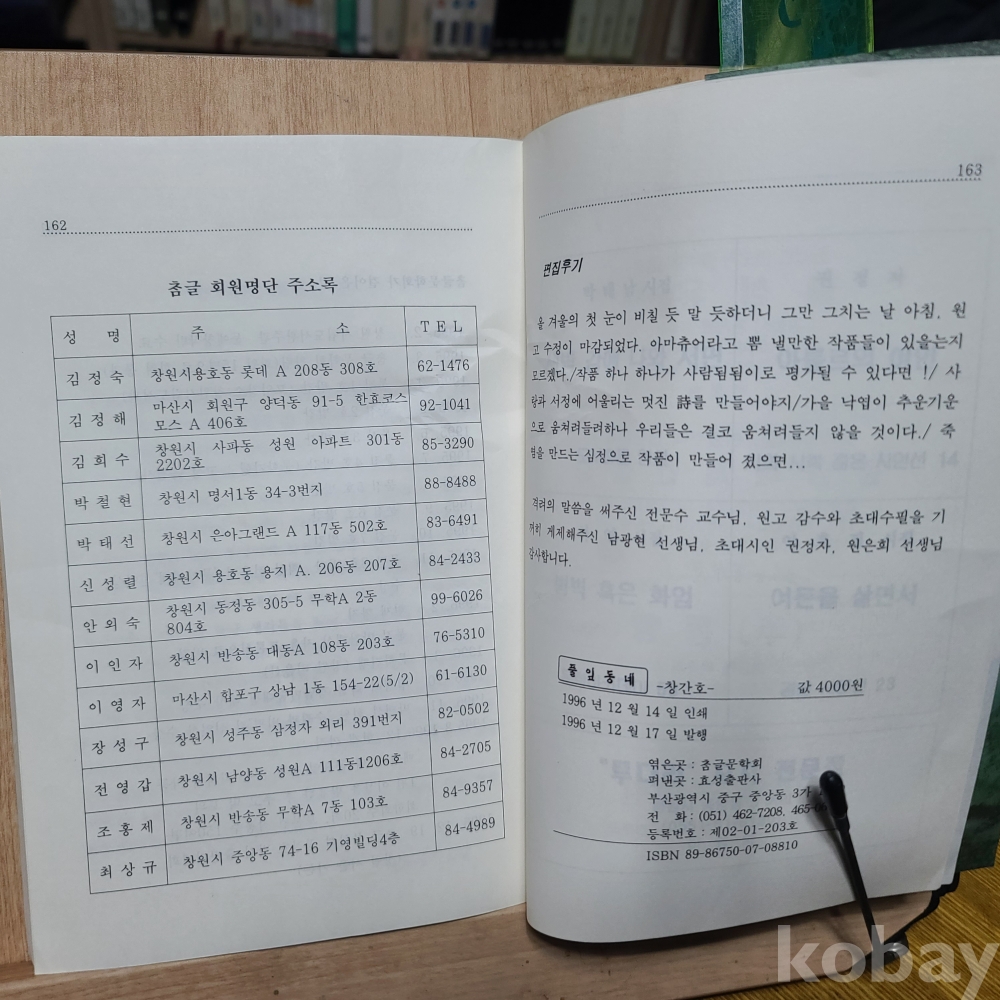 162
참글 회원명단 주소록
성 명 주 소 TEL
김정숙 창원시용호동 롯데 A 208동 308호 62-1476
김정해 마산시 회원구 양덕동 91-5 한효코스
모스 A 406호 92-1041
김희수 창원시 사파동 성원 아파트 301동
2202호 85-3290
박철현 창원시 명서1동 34-3번지 88-8488
박태선 창원시 은아그랜드 A 117동 502호 83-6491
신성렬 창원시 용호동 용지 A. 206동 207호 84-2433
안외숙 창원시 동정동 305-5 무학A 2동
804호 99-6026
이인자 창원시 반송동 대동A 108동 203호 76-5310
이영자 마산시 합포구 상남 1동 154-22(5/2) 61-6130
장성구 창원시 성주동 삼정자 외리 391번지 82-0502
전영갑 창원시 남양동 성원A 111동1206호 84-2705
조홍제 창원시 반송동 무학A 7동 103호 84-9357
최상규 창원시 중앙동 74-16 기영빌딩4층 84-4989
163
편집후기
올 겨울의 첫 눈이 비칠 듯 말 듯하더니 그만 그치는 날 아침, 원
고 수정이 마감되었다. 아마츄어라고 뽐 낼만한 작품들이 있을는지
모르겠다./작품 하나 하나가 사람됨됨이로 평가될 수 있다면 !/ 사
랑과 서정에 어울리는 멋진 詩를 만들어야지/가을 낙엽이 추운기운
으로 움쳐려들려하나 우리들은 결코 움쳐려들지 않을 것이다./ 죽
염을 만드는 심정으로 작품이 만들어 졌으면...
격려의 말씀을 써주신 전문수 교수님, 원고 감수와 초대수필을 기
꺼히 게제해주신 남광현 선생님, 초대시인 권정자, 원은희 선생님
감사합니다.
풀잎동네 -창간호- 값 4000원
1996 년 12 월 14 일 인쇄
1996 년 12 월 17 일 발행
엮은곳 : 참글문학회
펴낸곳 : 효성출판사
부산광역시 중구 중앙동 3가
전 화 : (051) 462-7208, 465-
등록번호 : 제02-01-203호
ISBN 89-86750-07-08810
kobay